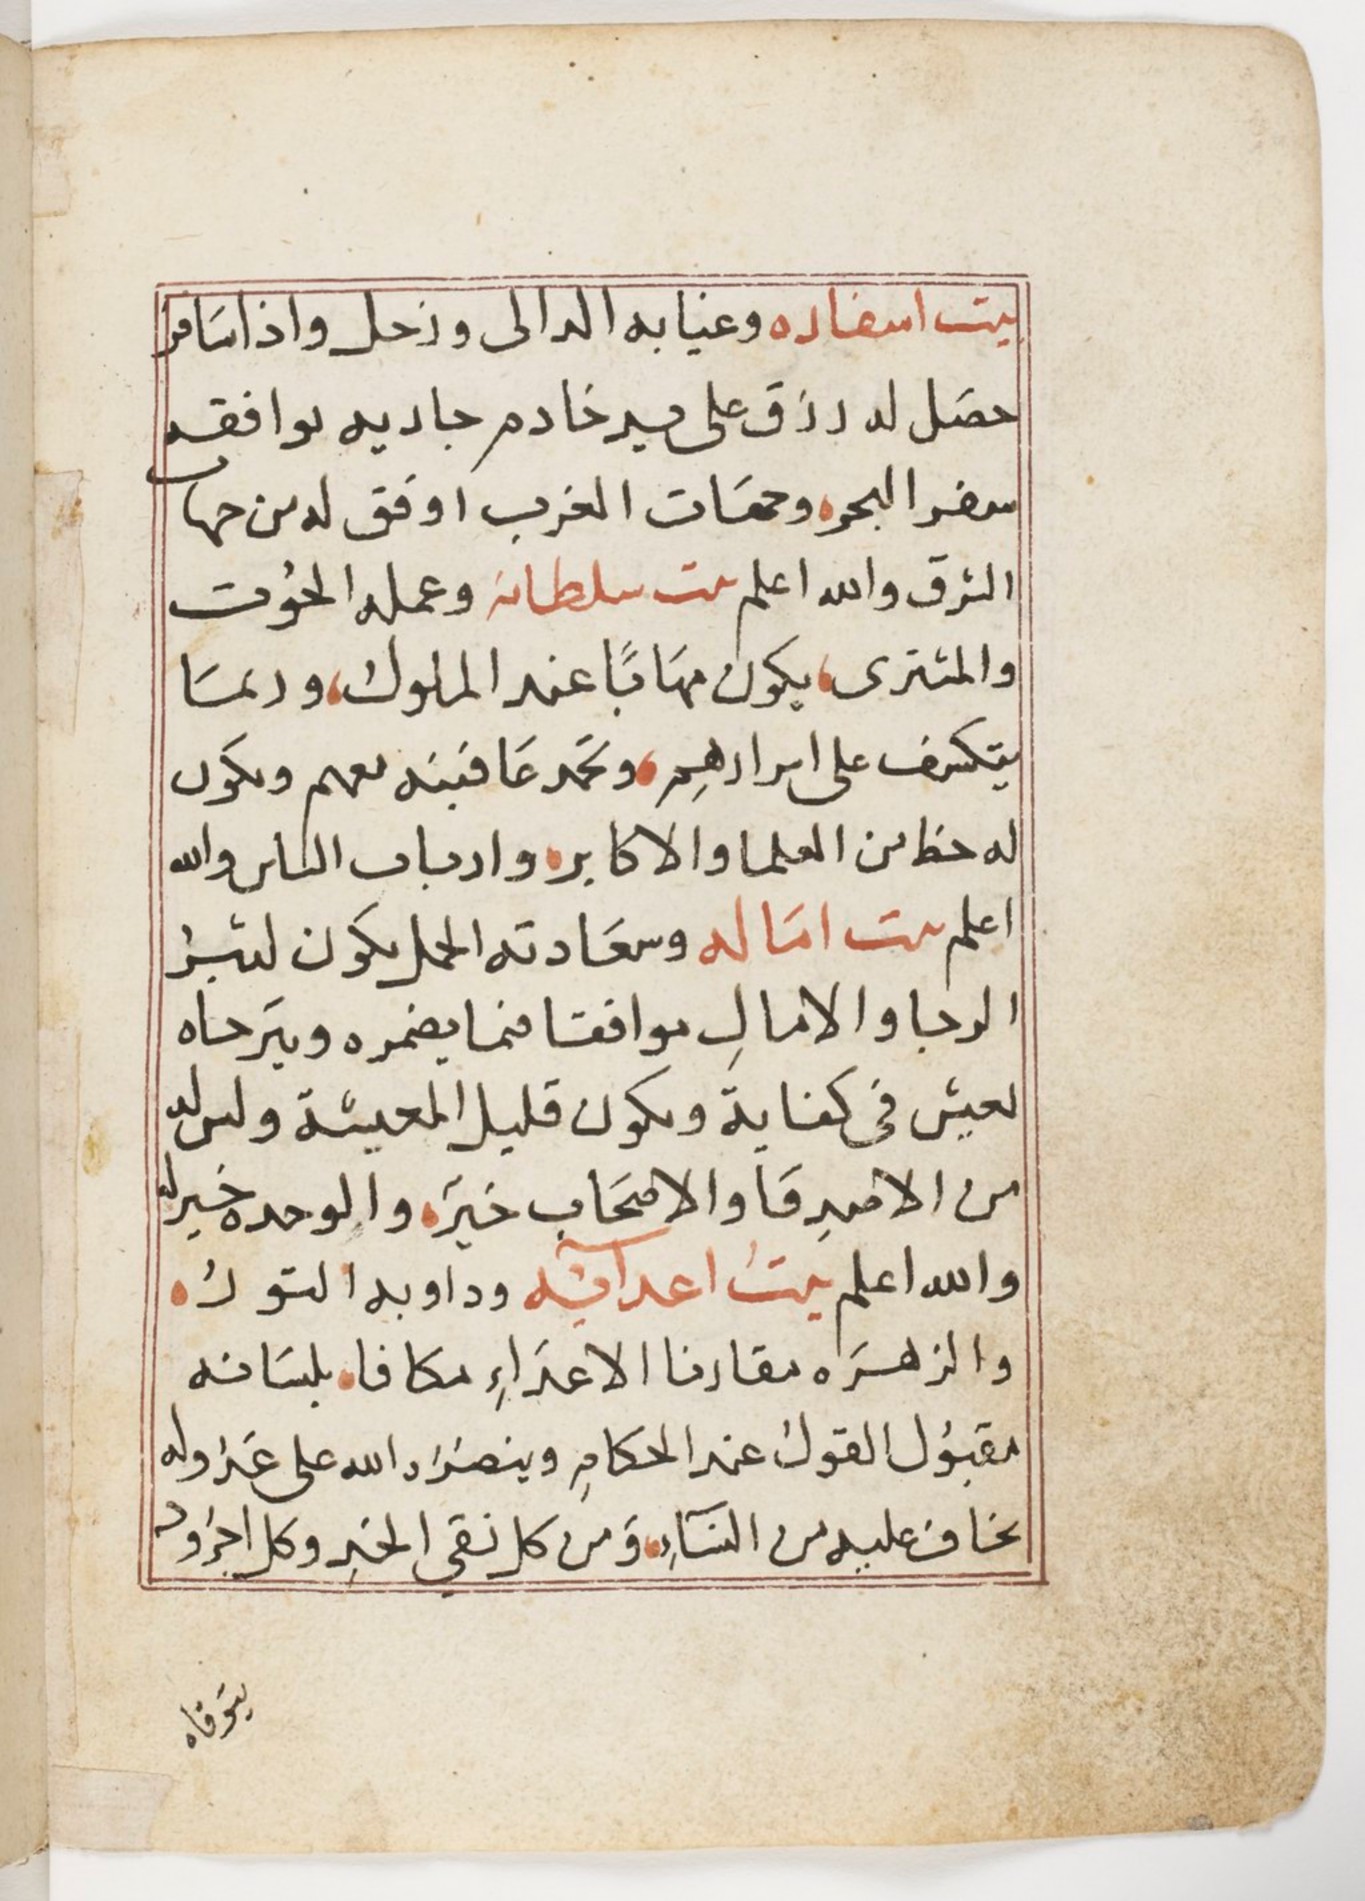 بيت اسفاره وغيابه الدالى وزحل واذا سافر
حصل له رزق على يد خادم جاريه يوافقه
سفر البحر وجهات الغرب اوفق له من جهات
الشرق والله اعلم بيت سلطانه وعمله الحوت
والمشترى يكون مهابًا عند الملوك وربما
يتكشف على اسرارهم وتحمد عاقبته معهم ويكون
له حظ من العلما والاكابر وارباب الناس والله
اعلم بيت اماله وسعادته الحمل يكون كثير
الرجا والامالِ موافقا فيما يضمره ويترجاه
يعيش فى كفاية ويكون قليل المعيشة وليس له
من الاصدِقا والاصحاب خير والوحده خير له
والله اعلم بيت اعدآئه ودوابه الثور
والزهره مقارنا الاعداءِ مكافا بلسانه
مقبول القول عند الحكامِ وينصره الله على عدوله
يخاف عليه من النسآءِ ومن كل نقي الخد وكل اجرود
يتوفاه